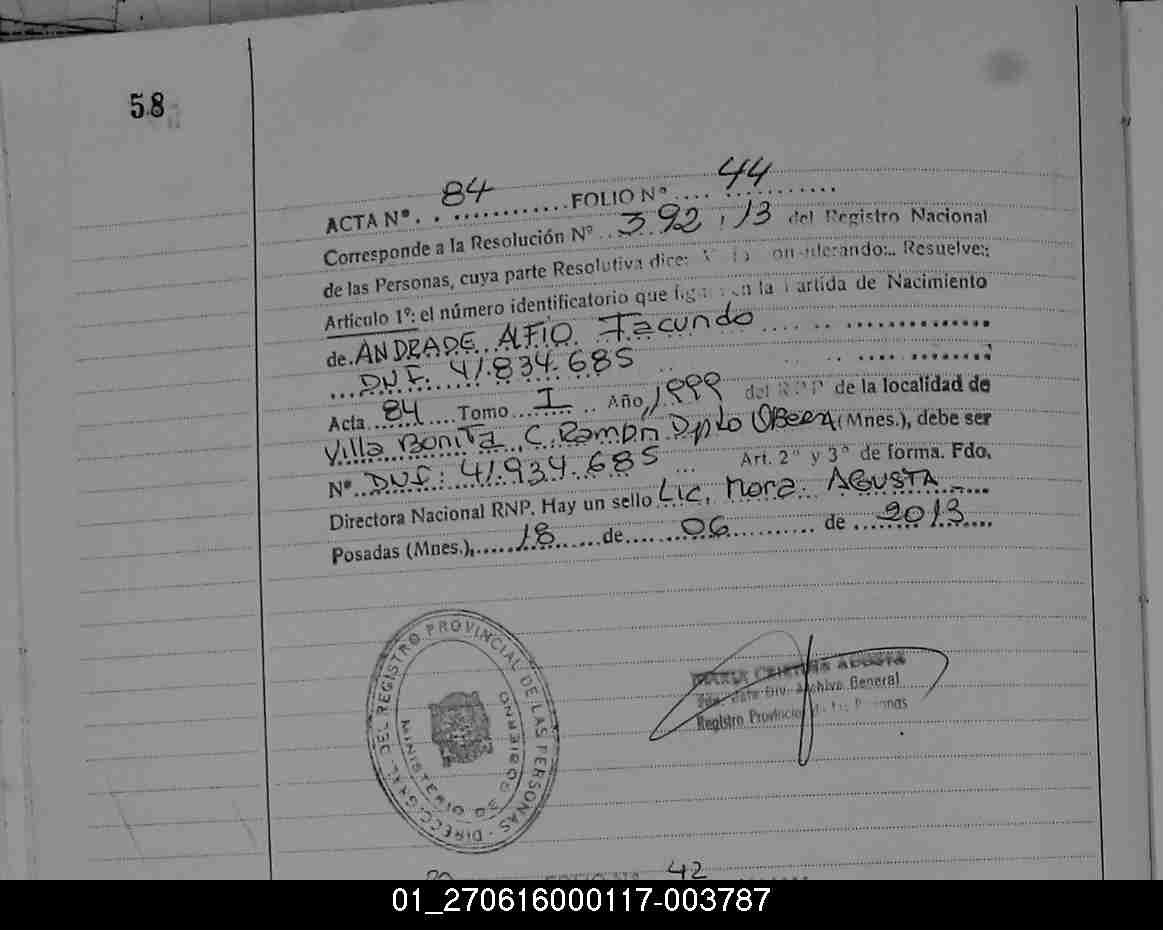 58
ACTA Nº. 84 FOLIO Nº 44
Corresponde a la Resolución Nº 392/13 del Registro Nacional
de las Personas, cuya parte Resolutiva dice: Resuelve:
Artículo 1º: el número identificatorio que en la Partida de Nacimiento
de ANDRADE ALFIO Facundo
DNI: 41.834.685
Acta 84 Tomo I Año 1999 del de la localidad de
Villa Bonita, C. Ramón Dpto OBERA (Mnes.), debe ser
Nº DNI: 41.934.685 Art. 2º y 3º de forma. Fdo.
Directora Nacional RNP. Hay un sello Lic. Mora AGUSTA
Posadas (Mnes.), 18 de 06 de 2013
DIRECC. GRAL. DEL REGISTRO PROVINCIAL DE LAS PERSONAS
MINISTERIO DE GOBIERNO
MARIA CRISTINA ACOSTA
Div. Archivo General
Registro Provincial
42
01_270616000117-003787